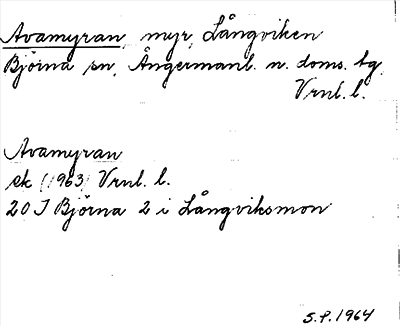 Avamyran, myr, Långviken
Björna sn, Ångermanl. n. doms. tg.
Vrnl. l.
Avamyran
ek (1963) Vrnl. l.
20 I Björna 2 i Långviksmon
S.P. 1964